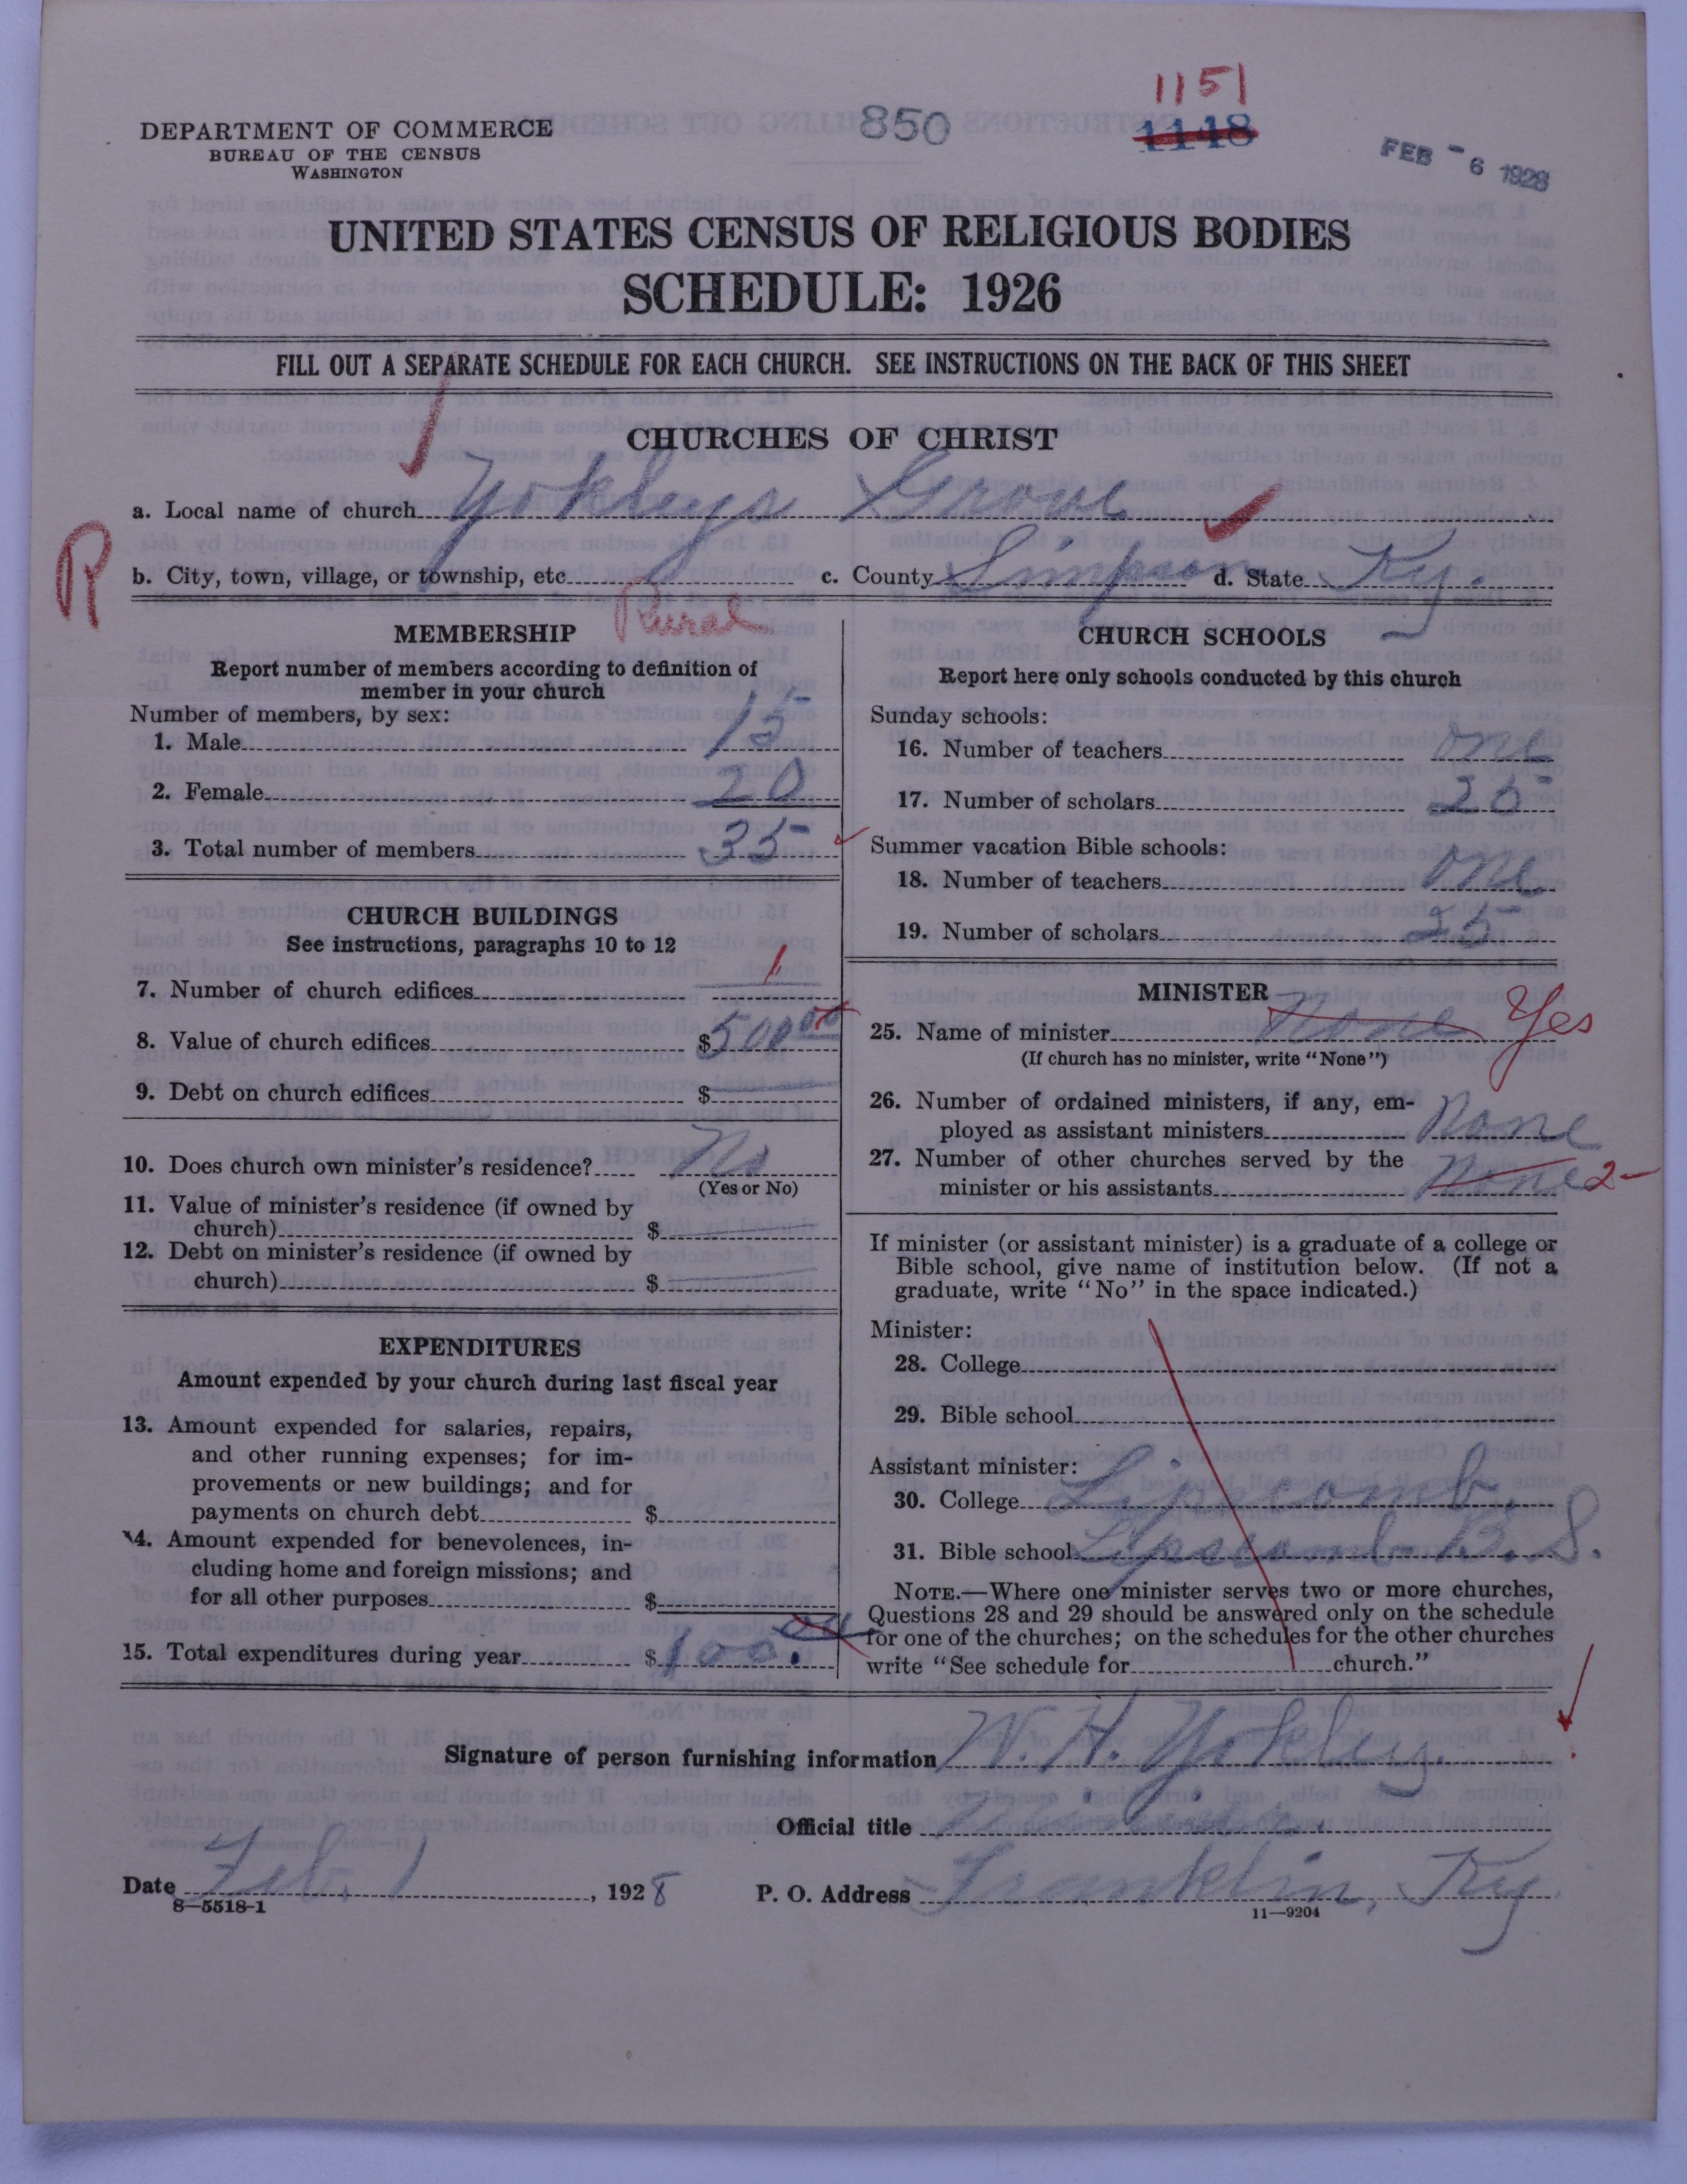 1151
850
1148
FEB - 6 1928
DEPARTMENT OF COMMERCE
BUREAU OF THE CENSUS
WASHINGTON
UNITED STATES CENSUS OF RELIGIOUS BODIES
SCHEDULE: 1926
FILL OUT A SEPARATE SCHEDULE FOR EACH CHURCH. SEE INSTRUCTIONS ON THE BACK OF THIS SHEET
CHURCHES OF CHRIST
a. Local name of church Yokleys Grove
R
b. City, town, village, or township, etc. c. County Simpson d. State Ky.
Rural
MEMBERSHIP
Report number of members according to definition of
member in your church
Number of members, by sex:
1. Male 15
2. Female 20
3. Total number of members 35
CHURCH BUILDINGS
See instructions, paragraphs 10 to 12
7. Number of church edifices 1
8. Value of church edifices $500.00
9. Debt on church edifices $
10. Does church own minister's residence? No
(Yes or No)
11. Value of minister's residence (if owned by
church) $
12. Debt on minister's residence (if owned by
church) $
EXPENDITURES
Amount expended by your church during last fiscal year
13. Amount expended for salaries, repairs,
and other running expenses; for im-
provements or new buildings; and for
payments on church debt $
14. Amount expended for benevolences, in-
cluding home and foreign missions; and
for all other purposes $
15. Total expenditures during year $100.00
CHURCH SCHOOLS
Report here only schools conducted by this church
Sunday schools:
16. Number of teachers one
17. Number of scholars 25
Summer vacation Bible schools:
18. Number of teachers one
19. Number of scholars 25
MINISTER
25. Name of minister None Yes
(If church has no minister, write "None")
26. Number of ordained ministers, if any, em-
ployed as assistant ministers None
27. Number of other churches served by the
minister or his assistants None 2-
If minister (or assistant minister) is a graduate of a college or
Bible school, give name of institution below. (If not a
graduate, write "No" in the space indicated.)
Minister:
28. College
29. Bible school
Assistant minister:
30. College Lipscomb.
31. Bible school Lipscomb B. S.
NOTE.—Where one minister serves two or more churches,
Questions 28 and 29 should be answered only on the schedule
for one of the churches; on the schedules for the other churches
write "See schedule for church."
Signature of person furnishing information W. H. Yokley.
Official title
Date Feb. 1, 1928 P. O. Address Franklin, Ky.
8—5518-1
11—9204